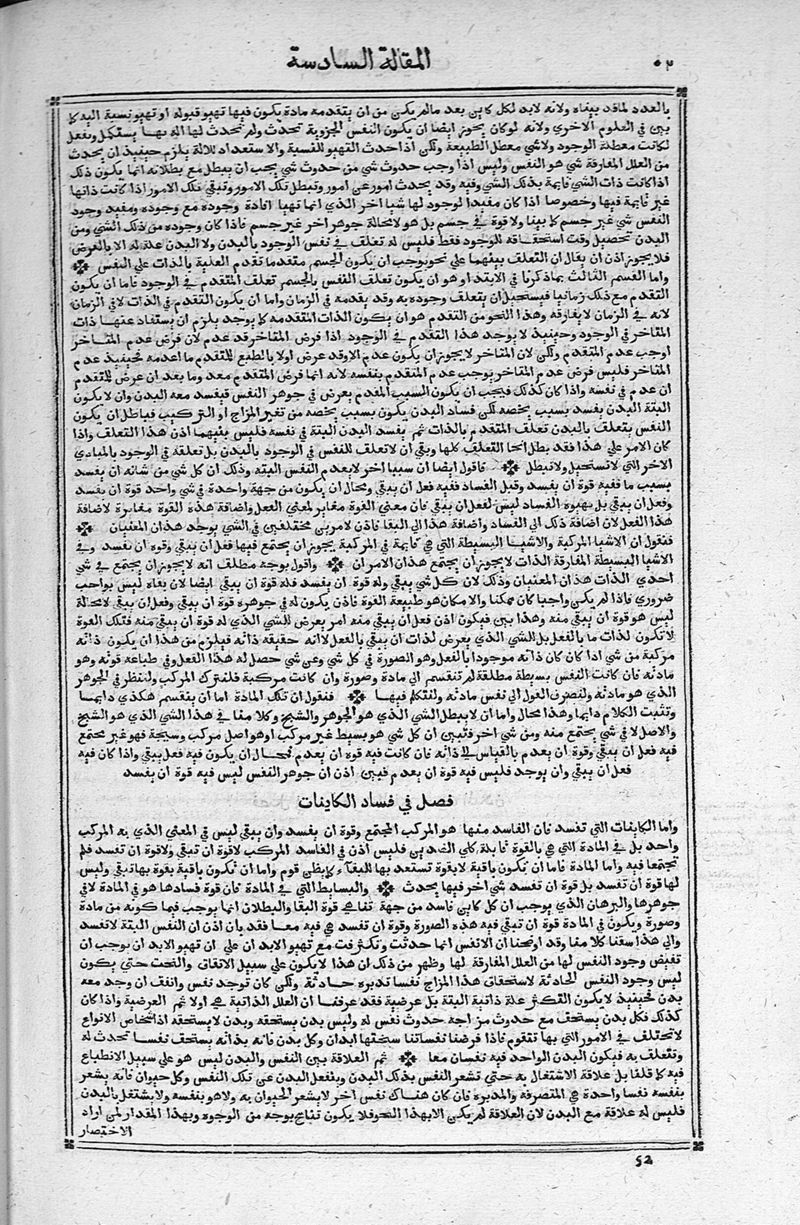 ٥٢ المقالة السادسة
بالعدد لما قد بيناه ولانه لابد لكل كاين بعد مالم يكن من ان يتقدمه مادة يكون فيها تهيو قبوله او تهيو نسبة اليه كما
بين في العلوم الاخري ولانه لوكان يجوز ايضا ان يكون النفس الجزوية تحدث ولم تحدث لها الة بها يستكمل وتفعل
لكانت معطلة الوجود ولاشي معطل الطبيعة ولكن اذا حدث التهيو للنسبة والاستعداد للالة يلزم حينيذ ان يحدث
من العلل المفارقة شي هو النفس وليس اذا وجب حدوث شي من حدوث شي يجب ان يبطل مع بطلانه انما يكون ذلك
اذا كانت ذات الشي قايمة بذلك الشي وفيه وقد يحدث امور عن امور وتبطل تلك الامور وتبقي تلك الامور اذا كانت ذاتها
غير قايمة فيها وخصوصا اذا كان مفيدا لوجود لها شيا اخر الذي انما تهيا افادة وجوده مع وجوده ومفيد وجود
النفس شي غير جسم كما بينا ولا قوة في جسم بل هو لامحالة جوهر اخر غير جسم فاذا كان وجوده من ذلك الشي ومن
البدن تحصيل وقت استحقاقه للوجود فقط فليس له تعلف في نفس الوجود بالبدن ولا البدن علة له الا بالعرض
فلا يجوز اذن ان يقال ان التعلف بينهما علي نحو يوجب ان يكون الجسم متقدما تقدم العلية بالذات علي النفس
واما القسم الثالث بما ذكرنا في الابتدا وهو ان يكون تعلف النفس بالجسم تعلف المتقدم في الوجود فاما ان يكون
التقدم مع ذلك زمانيا فيستحيل ان يتعلف وجوده به وقد يقدمه في الزمان واما ان يكون التقدم في الذات لا في الزمان
لانه في الزمان لا يفارقه وهذا النحو من التقدم هو ان يكون الذات المتقدمه كما يوجد يلزم ان يستفاد عنها ذات
المتاخر في الوجود وحينيذ لا يوجد هذا التقدم في الوجود اذا فرض المتاخر قد عدم لان فرض عدم المتاخر
اوجب عدم المتقدم ولكن لان المتاخر لا يجوز ان يكون عدم الا وقد عرض اولا بالطبع للمتقدم ما اعدمه فحينيذ عدم
المتاخر فليس فرض عدم المتاخر يوجب عدم المتقدم بنفسه لانه انما فرض المتقدم معد وما بعد ان عرض للمتقدم
ان عدم في نفسه واذا كان كذلك فيجب ان يكون السبب المعدم يعرض في جوهر النفس فيفسد معه البدن وان لا يكون
البتة البدن يفسد بسبب يخصه لكن فساد البدن يكون بسبب يخصه من تغير المزاج او التركيب فباطل ان يكون
النفس يتعلف بالبدن تعلف المتقدم بالذات ثم يفسد البدن البتة في نفسه فليس بينهما اذن هذا التعلف واذا
كان الامر علي هذا فقد بطل انحا التعلف كلها وبقي ان لا تعلف للنفس في الوجود بالبدن بل تعلقه في الوجود بالمبادي
الاخر التي لا تستحيل ولا تبطل فاقول ايضا ان سببا اخر لا يعدم النفس البته وذلك ان كل شي من شانه ان يفسد
بسبب ما ففيه قوة ان يفسد وقبل الفساد ففيه فعل ان يبقي ومحال ان يكون من جهة واحدة في شي واحد قوة ان يفسد
وفعل ان يبقي بل تهيوه الفساد ليس لفعل ان يبقي فان معني القوة مغاير لمعني الفعل واضافة هذه القوة مغايرة لاضافة
هذا الفعل لان اضافة ذلك الي الفساد واضافة هذا الي البقا فاذن لامرين مختلفين في الشي يوجد هذان المعنيان
فنقول ان الاشيا المركبة والاشيا البسيطة التي هي قايمة في المركبة يجوز ان يجتمع فيها فعل ان يبقي وقوة ان يفسد وفي
الاشيا البسيطة المفارقة الذات لا يجوز ان يجتمع هذان الامران واقول بوجه مطلف انه لا يجوز ان يجتمع في شي
احدي الذات هذان المعنيان وذلك لان كل شي يبقي وله قوة ان يفسد فله قوة ان يبقي ايضا لان بقاه ليس بواجب
ضروري فاذا لم يكن واجبا كان ممكنا والامكان هو طبيعة القوة فاذن يكون له في جوهره قوة ان يبقي وفعل ان يبقي لامحالة
ليس هو قوة ان يبقي منه وهذا بين فيكون اذن فعل ان يبقي منه امر يعرض للشي الذي له قوة ان يبقي منه فتلك القوة
لا تكون لذات ما بالفعل بل للشي الذي يعرض لذات ان يبقي بالفعل لانه حقيقه ذاته فيلزم من هذا ان يكون ذاته
مركبة من شي اذا كان كان ذاته موجودا بالفعل وهو الصورة في كل شي وعن شي حصل له هذا الفعل وفي طباعه قوته وهو
مادته فان كانت النفس بسيطة مطلقة لم تنقسم الي مادة وصورة وان كانت مركبة فلنترك المركب ولننظر في الجوهر
الذي هو مادته ولنصرف القول الي نفس مادته ولنتكلم فيها فنقول ان تلك المادة اما ان ينقسم هكذي دايما
وتثبت الكلام دايما وهذا محال واما ان لا يبطل الشي الذي هو الجوهر والشيخ وكلامنا في هذا الشي الذي هو الشيخ
والاصل لا في شي يجتمع منه ومن شي اخر فتبين ان كل شي هو بسيط غير مركب او هو اصل مركب وسنخة فهو غير مجتمع
فيه فعل ان يبقي وقوة ان يعدم بالقياس الي ذاته فان كانت فيه قوة ان يعدم فمحال ان يكون فيه فعل يبقي واذا كان فيه
فعل ان يبقي وان يوجد فليس فيه قوة ان يعدم فبين اذن ان جوهر النفس ليس فيه قوة ان يفسد
فصل في فساد الكاينات
واما الكاينات التي تفسد فان الفاسد منها هو المركب المجتمع وقوة ان يفسد وان يبقي ليس في المعني الذي به المركب
واحد بل في المادة التي هي بالقوة قابلة كلي الضدين فليس اذن في الفاسد المركب لا قوة ان تبقي ولا قوة ان تفسد فلم
تجتمعا فيه واما المادة فاما ان تكون باقية لا بقوة تستعد بها للبقاء كما يظن قوم واما ان تكون باقية بقوة بها تبقي وليس
لها قوة ان تفسد بل قوة ان تفسد شي اخر فيها يحدث والبسايط التي في المادة فان قوة فسادها هو في المادة لا في
جوهرها والبرهان الذي يوجب ان كل كاين فاسد من جهة تناهي قوة البقا والبطلان انما يوجب فيما كونه من مادة
وصورة ويكون في المادة قوة ان تبقي فيه هذه الصورة وقوة ان تفسد هي فيه معا فقد بان اذن ان النفس البتة لا تفسد
والي هذا سقنا كلامنا وقد اوضحنا ان الانفس انما حدثت وتكثرت مع تهيو الابدان علي ان تهيو الابدان يوجب ان
تفيض وجود النفس لها من العلل المفارقة لها وظهر من ذلك ان هذا لا يكون علي سبيل الاتفاق والبخت حتي يكون
ليس وجود النفس الحادثة لاستحقاق هذا المزاج نفسا تدبره حادثة ولكن كان توجد نفس واتفف ان وجد معه
بدن فحينيذ لا يكون التكثر علة ذاتية البتة بل عرضية فقد عرفنا ان العلل الذاتية هي اولا ثم العرضية واذا كان
كذلك فكل بدن يستحف مع حدوث مزاجه حدوث نفس له وليس بدن يستحقه وبدن لا يستحقه اذ اشخاص الانواع
لا تختلف في الامور التي بها تتقوم فاذا فرضنا نفسا تناسختها ابدان وكل بدن فانه بذاته يستحف نفسا تحدث له
وتتعلف به فيكون البدن الواحد فيه نفسان معا ثم العلاقة بين النفس والبدن ليس هو علي سبيل الانطباع
فيه كما قلنا بل علاقة الاشتغال به حتي تشعر النفس بذلك البدن وينفعل البدن عن تلك النفس وكل حيوان فانه يشعر
بنفسه نفسا واحدة هي المتصرفة والمدبرة فان كان هناك نفس اخر لا يشعر الحيوان به ولا هو بنفسه ولا يشتغل بالبدن
فليس له علاقة مع البدن لان العلاقة لم يكن الا بهذا النحو فلا يكون تناسخ بوجه من الوجوه وبهذا المقدار لمن اراد
الاختصار
52